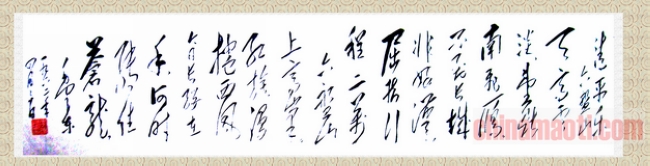 清平乐
六盘山
天高云
淡望断
南飞雁
不到长城
非好汉
屈指行
程二万
六盘山
上高峰
红旗漫
卷西风
今日长缨在
手何时
缚住
蒼龍
毛泽东
chinamaoti.com